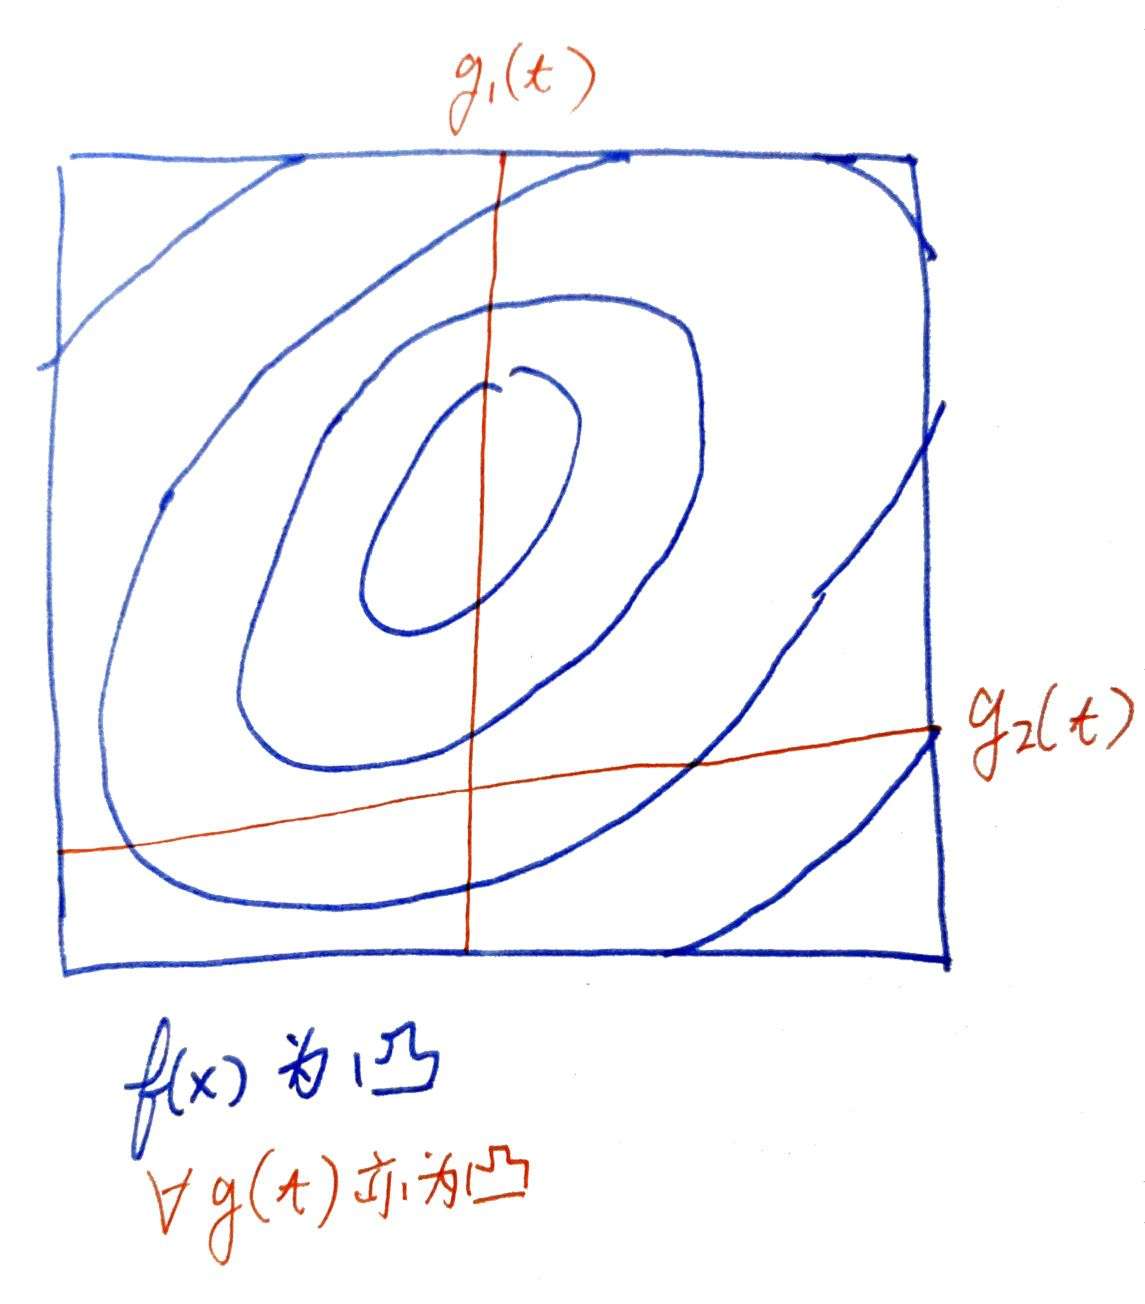 g₁(t)
g₂(t)
f(x) 为凸
∀ g(t) 亦为凸